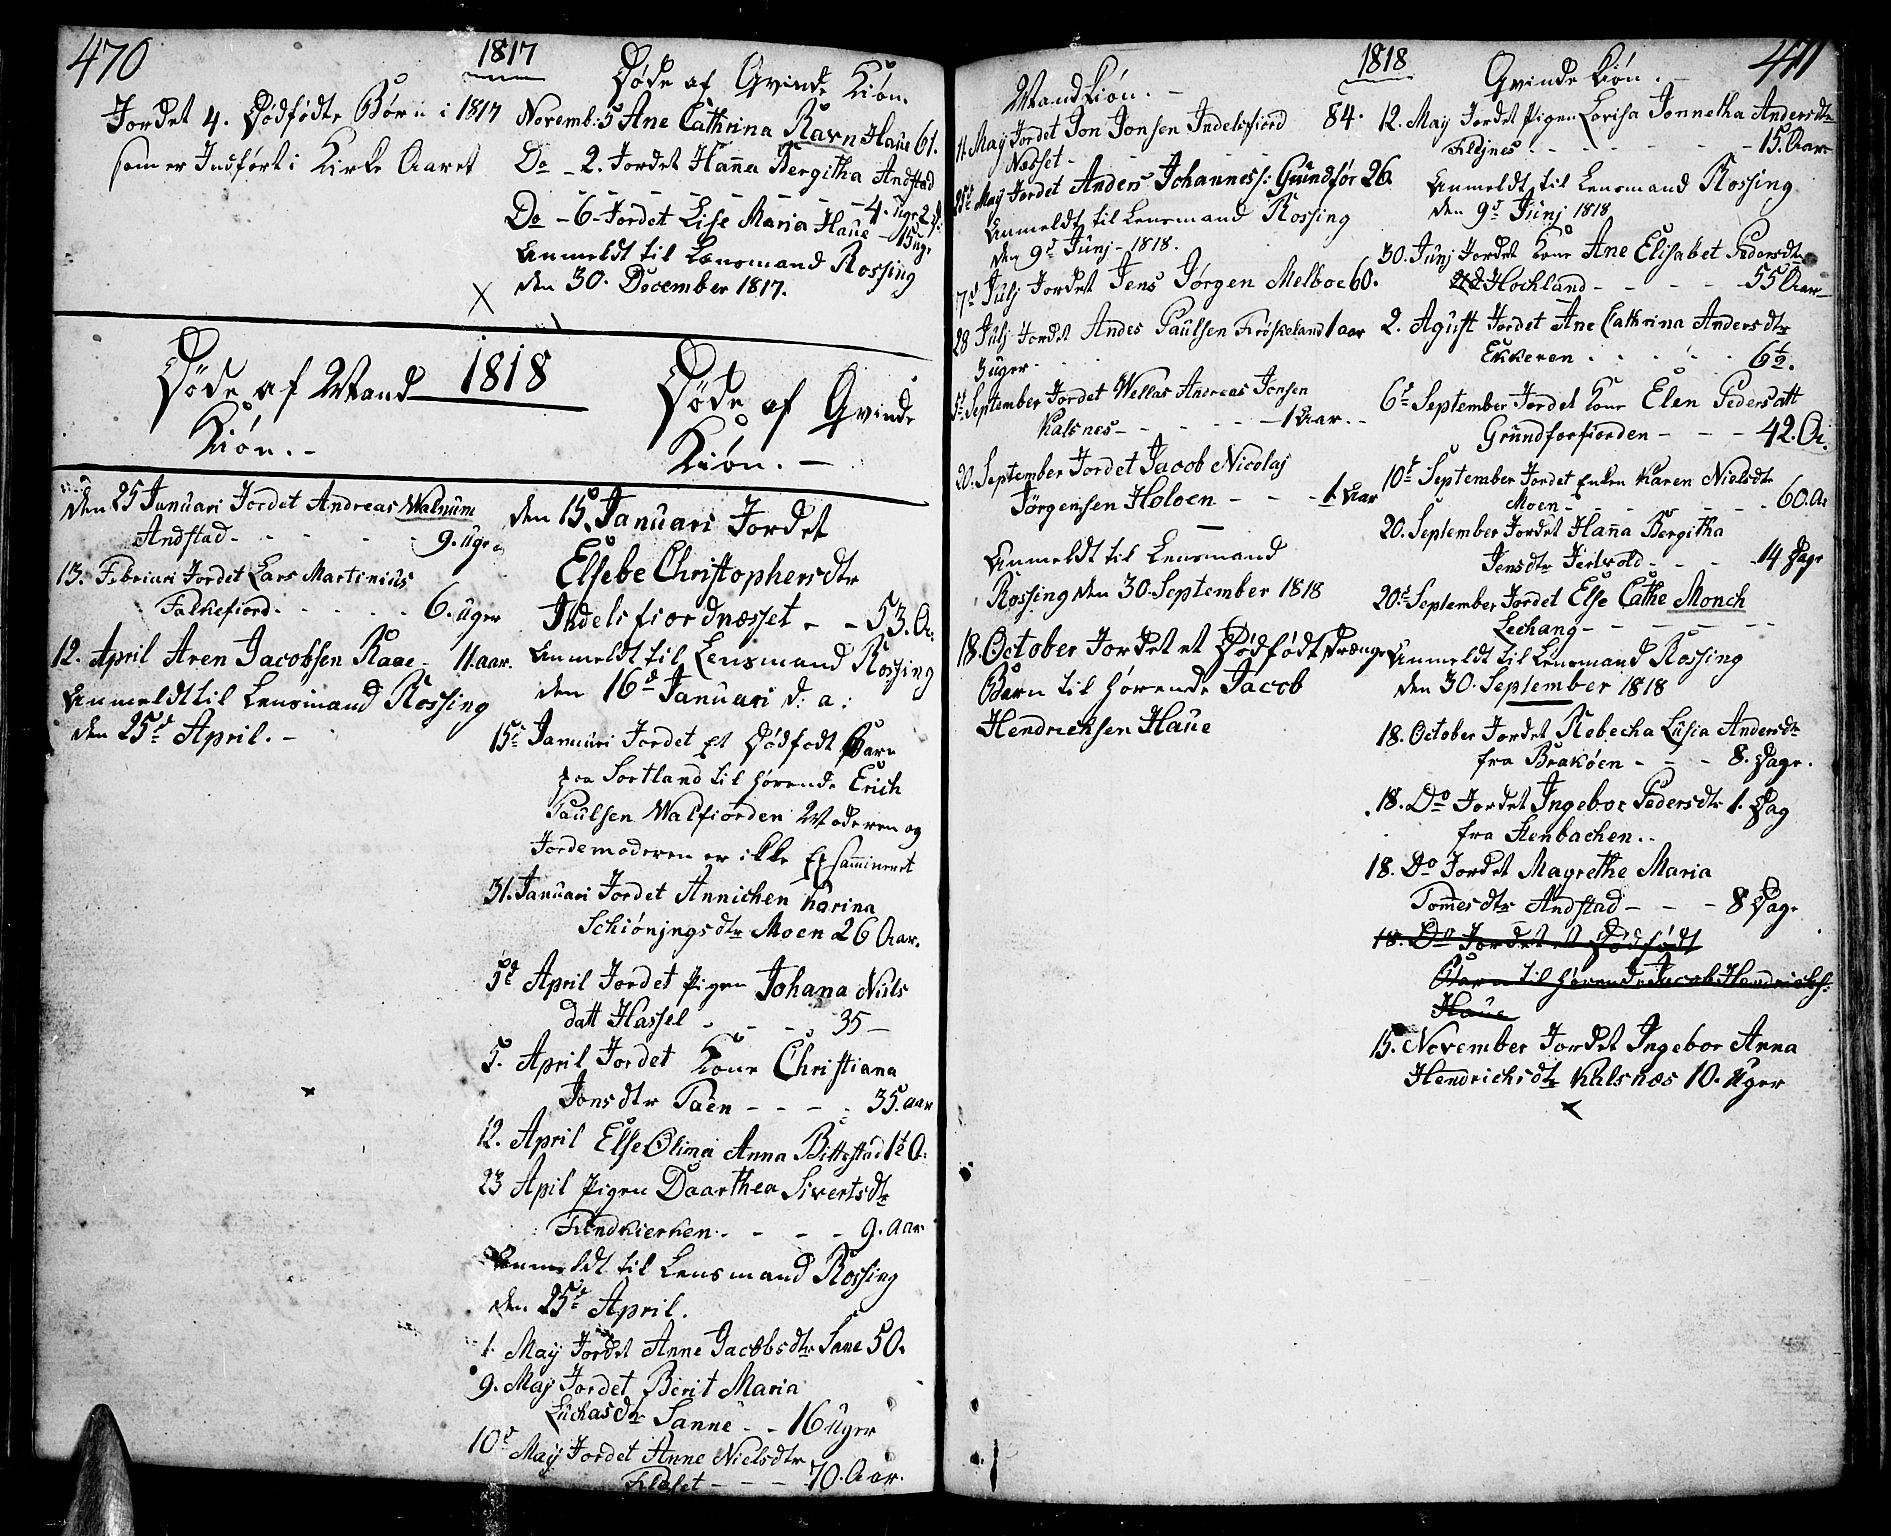 470
1817
Jordet 4. Dödfödte Börn i 1817
som er Indfört i Kirke Aaret
Döde af Qvinde Kiön.
Novemb: 5 Ane Cathrina Ravn Haue 61.
Do - 2. Jordet Hanna Bergitha Andstad
- - - - - - 4. Uger 2 d:
Do - 6 - Jordet Lise Maria Haue - 15 ug:
Anmeldt til Lensmand Rossing
den 30. December 1817.
X
1818
Döde af Mand
Kiön. -
Den 25 Januari Jordet Andreas Walnum
Andstad - - - - - 9. Uger
13. Februari Jordet Lars Martinius
Falkefiord - - - - - 6. uger
12. April Aren Jacobsen Raae - 11. aar.
Anmeldt til Lensmand Rossing
den 25d April. -
Döde af Qvinde
Kiön. -
den 15. Januari Jordet
Elsebe Christophersdtr
Indelifiordnæsset - - 53. A:
Anmeldt til Lensmand Rossing
den 16d Januari d: a:
15d Januari Jordet Et Dödfödt Barn
paa Sortland til hörende Erich
Paulsen Walfiorden Moderen og
Jordemoderen er ikke Exsamineret
31. Januari Jordet Annichen Karina
Schiönjngsdtr Moen 26 Aar.
5d April Jordet Pigen Johana Niels
datt Hassel - - - - 35 -
5. April Jordet Kone Christiana
Jonsdtr Taen - - - - 35. aar
12. April Else Olima Anna Bittestad 1½ A:
23 Apil Pigen Daarthea Sivertsdtr
Findkierken - - - - 9. Aar
Anmeldt til Lensmand Rossing
den 25d April.
1. May Jordet Anne Jacobsdtr Sane 50.
9. May Jordet Berit Maria
Luchasdtr Sanne - - 16 Uger
10d May Jordet Anne Nielsdtr
Fleset - - - 70. Aar.
1818
471
Mand Kiön. -
11. May Jordet Jon Jonsen Indelifiord 84.
Nesset - - - - - -
25d May Jordet Anders Johanness: Grundför 26.
Anmeldt til Lensmand Rossing
den 9d Junj - 1818.
7d Julj Jordet Jens Jörgen Melboe 60.
28 Julj Jordet Andes Paulsen Fröskeland 1 aar
3 uger - . .
September Jordet Wellas Andreas Jonsen
Kalsnes - - - - - - 1 Aar. -
20. September Jordet Jacob Nicolaj
Jörgensen Holoen - - - 1 Aar
Anmeldt til Lensmand
Rossing den 30. September 1818
18. October Jordet et Dödfödt Drænge
Barn til hörende Jacob
Hendrichsen Haue
Qvinde Kiön. -
12. May Jordet Pigen Lovisa Jonnetha Andersdtr
Fledjnes - - - - - - 15. Aar
Anmeldt til Lensmand Rossing
den 9d Junj 1818
30. Junj Jordet Kone Ane Elisabet Pedersdtr
Hochland - - - - - 55 Aar -
2. Agust Jordet Ane Cathrina Andersdtr
Ekkeren . . . . . 6½.
6d September Jordet Kone Elen Pedersdtt
Grundforfiorden - - - 42. A.
10d September Jordet Enken Karen Nielsdtr
Moen - - - - - - 60. A
20. September Jordet Hanna Bergitha
Jensdtr Jerlvold - - - - 14 Dage
20d September Jordet Else Cathe Monch
Lechang - - - - - -
Anmeldt til Lensmand Rossing
den 30. September 1818
18. October Jordet Rebecha Lusia Andersdtr
fra Brakoen - - - 8. Dage.
18. Do Jordet Ingebor Pedersdtr 1. Dag
fra Stenbachen. .
18. Do Jordet Magrethe Maria
Tommesdtr Andstad - - - 8 Dage
18. Do Jordet et Dödfödt
Barn til hörende Jacob Hendrichs:
Haue
15. November Jordet Ingebor Anna
Hendrichsdtr Kulsnæs 10. Uger
x